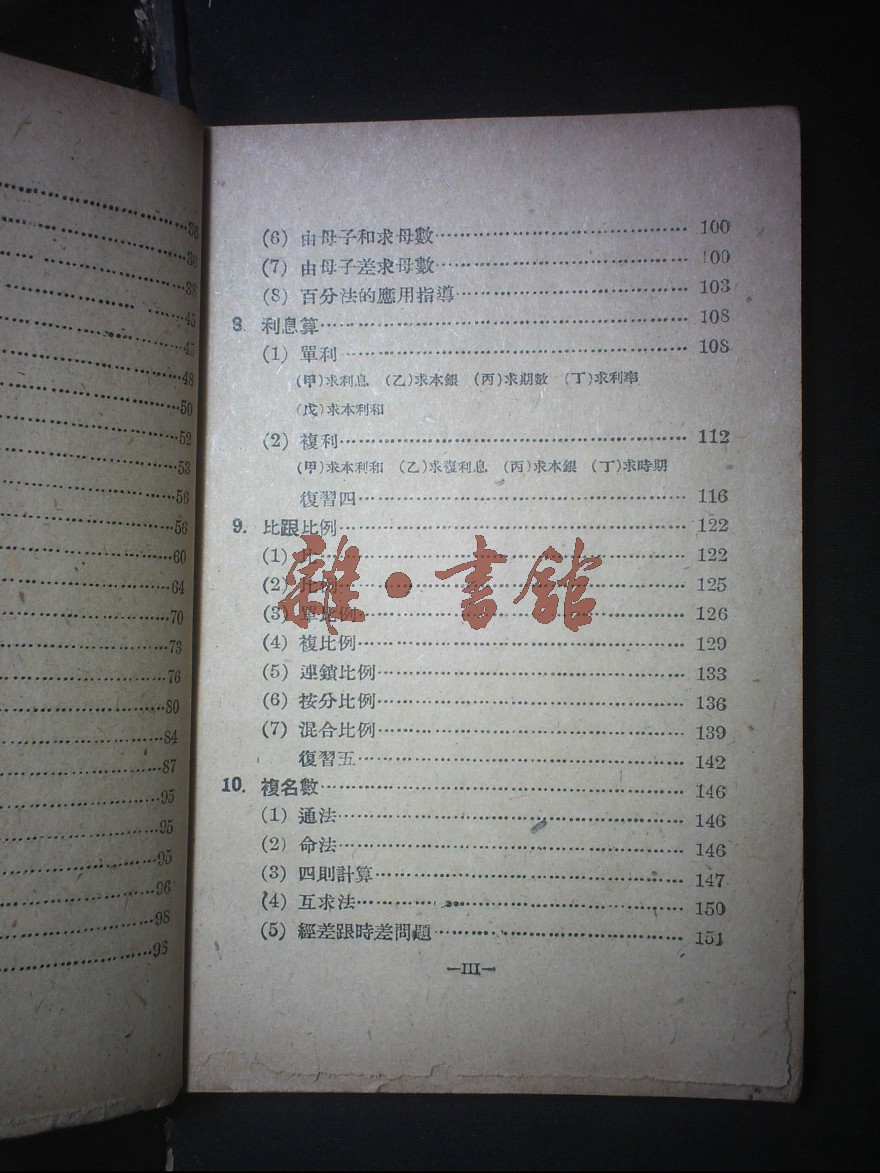 30
36
38
45
45
48
50
52
53
56
56
60
64
70
73
76
80
84
87
95
95
95
96
98
98
(6) 由母子和求母數 100
(7) 由母子差求母數 100
(8) 百分法的應用指導 103
8. 利息算 108
(1) 單利 108
(甲)求利息 (乙)求本銀 (丙)求期數 (丁)求利率
(戊)求本利和
(2) 複利 112
(甲)求本利和 (乙)求複利息 (丙)求本銀 (丁)求時期
復習四 116
9. 比跟比例 122
(1) 比 122
(2) 比例 125
(3) 單比例 126
(4) 複比例 129
(5) 連鎖比例 133
(6) 按分比例 136
(7) 混合比例 139
復習五 142
10. 複名數 146
(1) 通法 146
(2) 命法 146
(3) 四則計算 147
(4) 互求法 150
(5) 經差跟時差問題 151
—III—
雜·書館